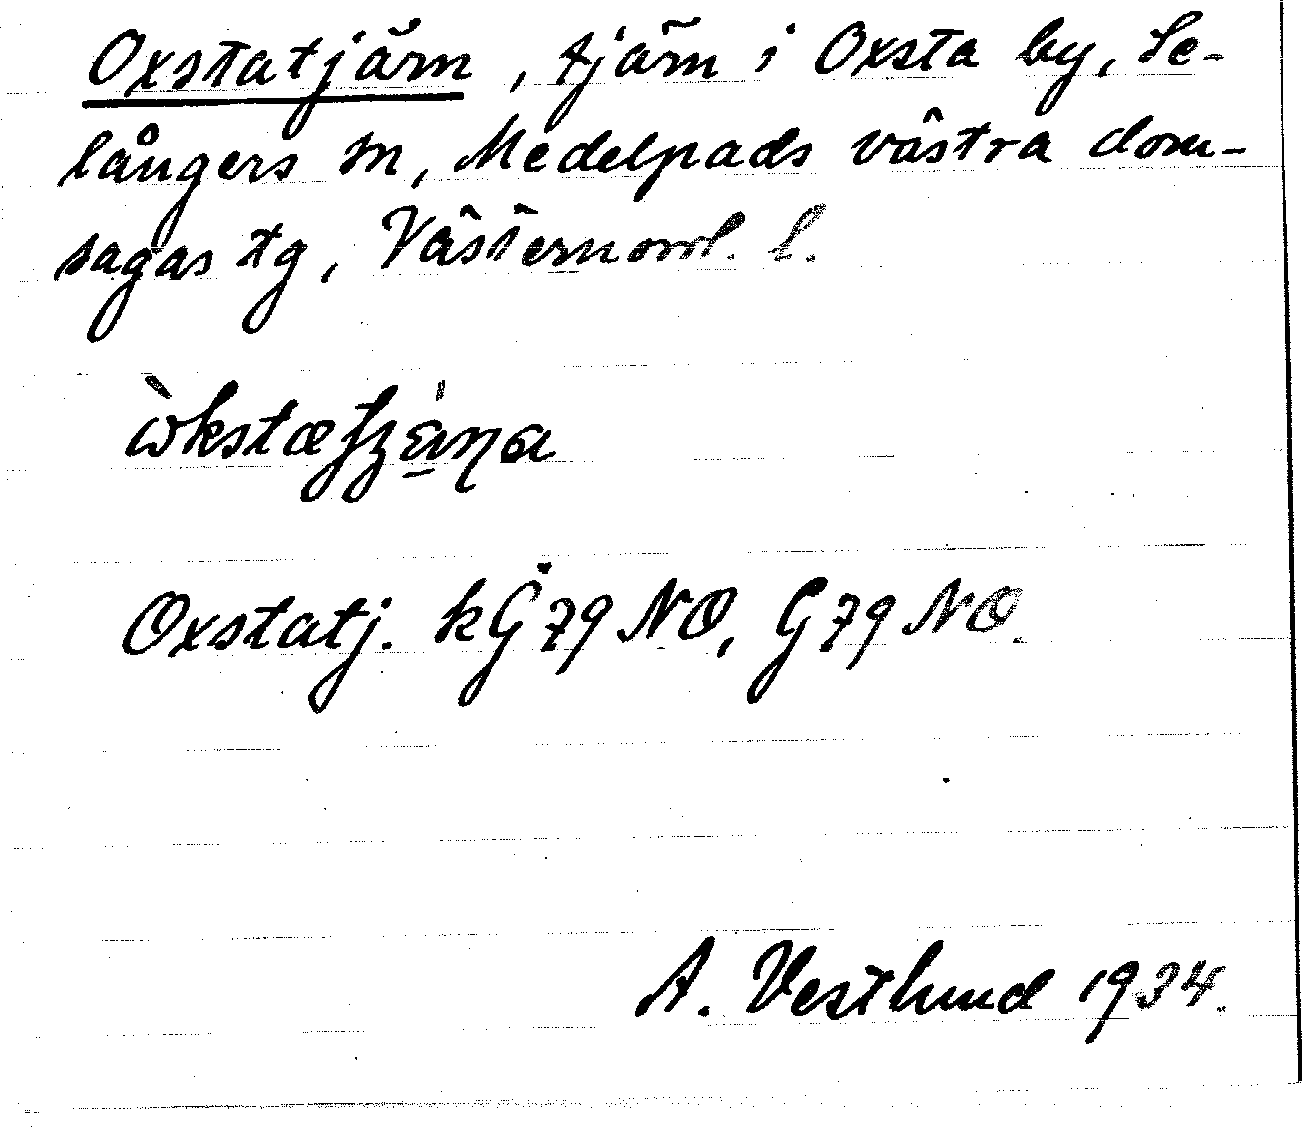 Oxstatjärn, tjärn i Oxsta by, Se-
långers sn, Medelpads västra dom-
sagas tg, Västernorrl. l.
Oxstatj. kG 79 NO, G 79 NO.
A. Vestlund 1934.